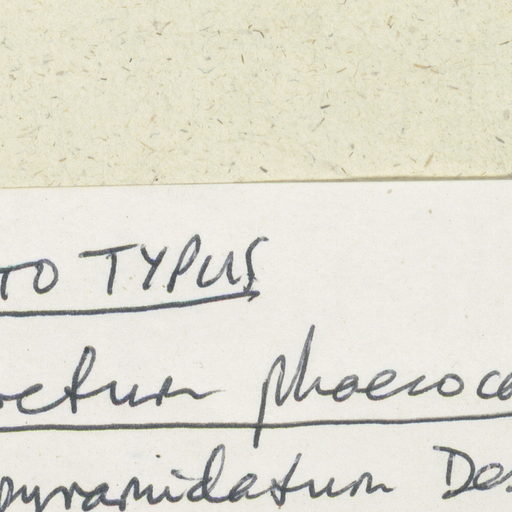 TO TYPUS
retum phaeoco
pyramidatum Des